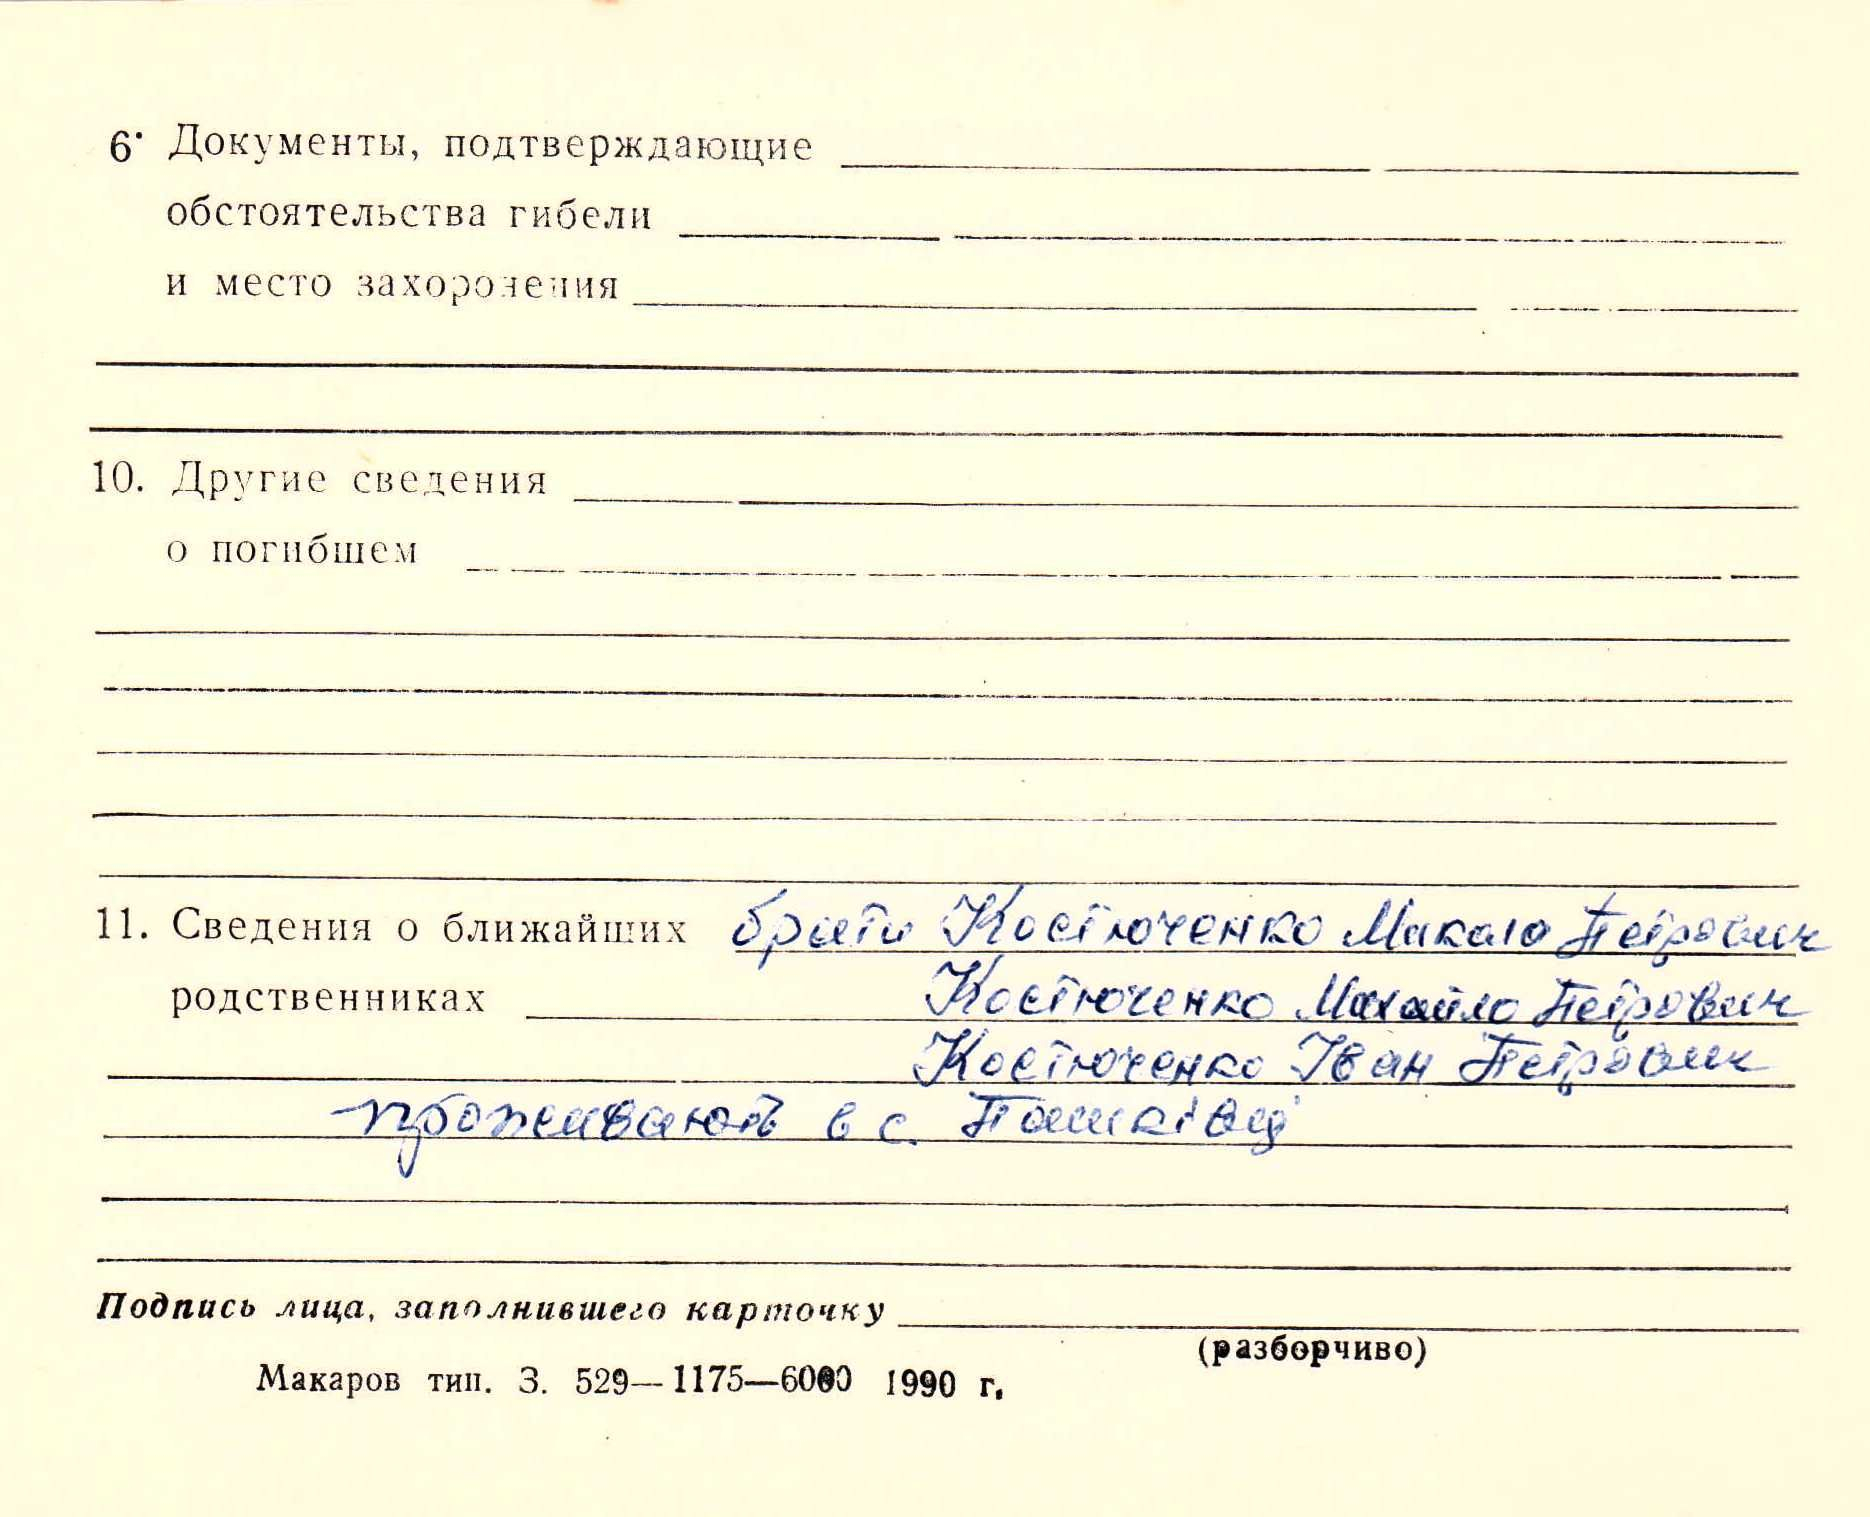 6. Документы, подтверждающие
обстоятельства гибели
и место захоронения
10. Другие сведения
о погибшем
11. Сведения о ближайших брати Костюченко Микола Петрович
родственниках Костюченко Михайло Петрович
Костюченко Іван Петрович
проживають в с. Пашківці
Подпись лица, заполнившего карточку
(разборчиво)
Макаров тип. З. 529—1175—6000 1990 г.